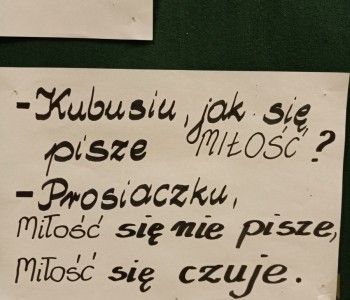 - Kubusiu, jak się
pisze MIŁOŚĆ ?
- Prosiaczku,
MiŁOŚĆ się nie pisze,
MiŁOŚĆ się czuje.